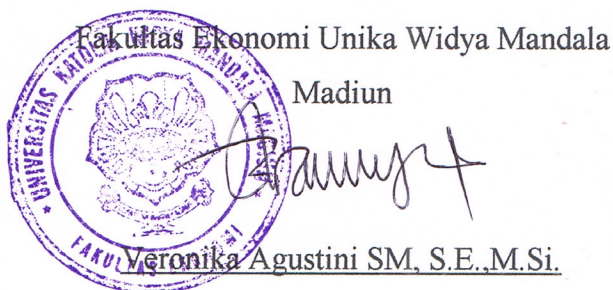 Fakultas Ekonomi Unika Widya Mandala
Madiun
UNIVERSITAS KATOLIK WIDYA MANDALA MADIUN
FAKULTAS EKONOMI
Veronika Agustini SM, S.E.,M.Si.